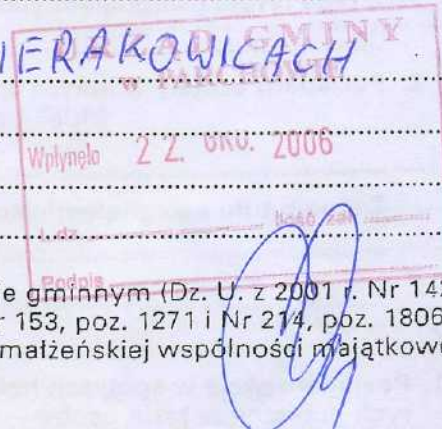 URZĄD GMINY
IERAKOWICACH
w PARCHOWIE
Wpłynęło 22. GRU. 2006
L.dz. Ilość zał.
Podpis
e gminnym (Dz. U. z 2001 r. Nr 142
r 153, poz. 1271 i Nr 214, poz. 1806
małżeńskiej wspólności majątkowe